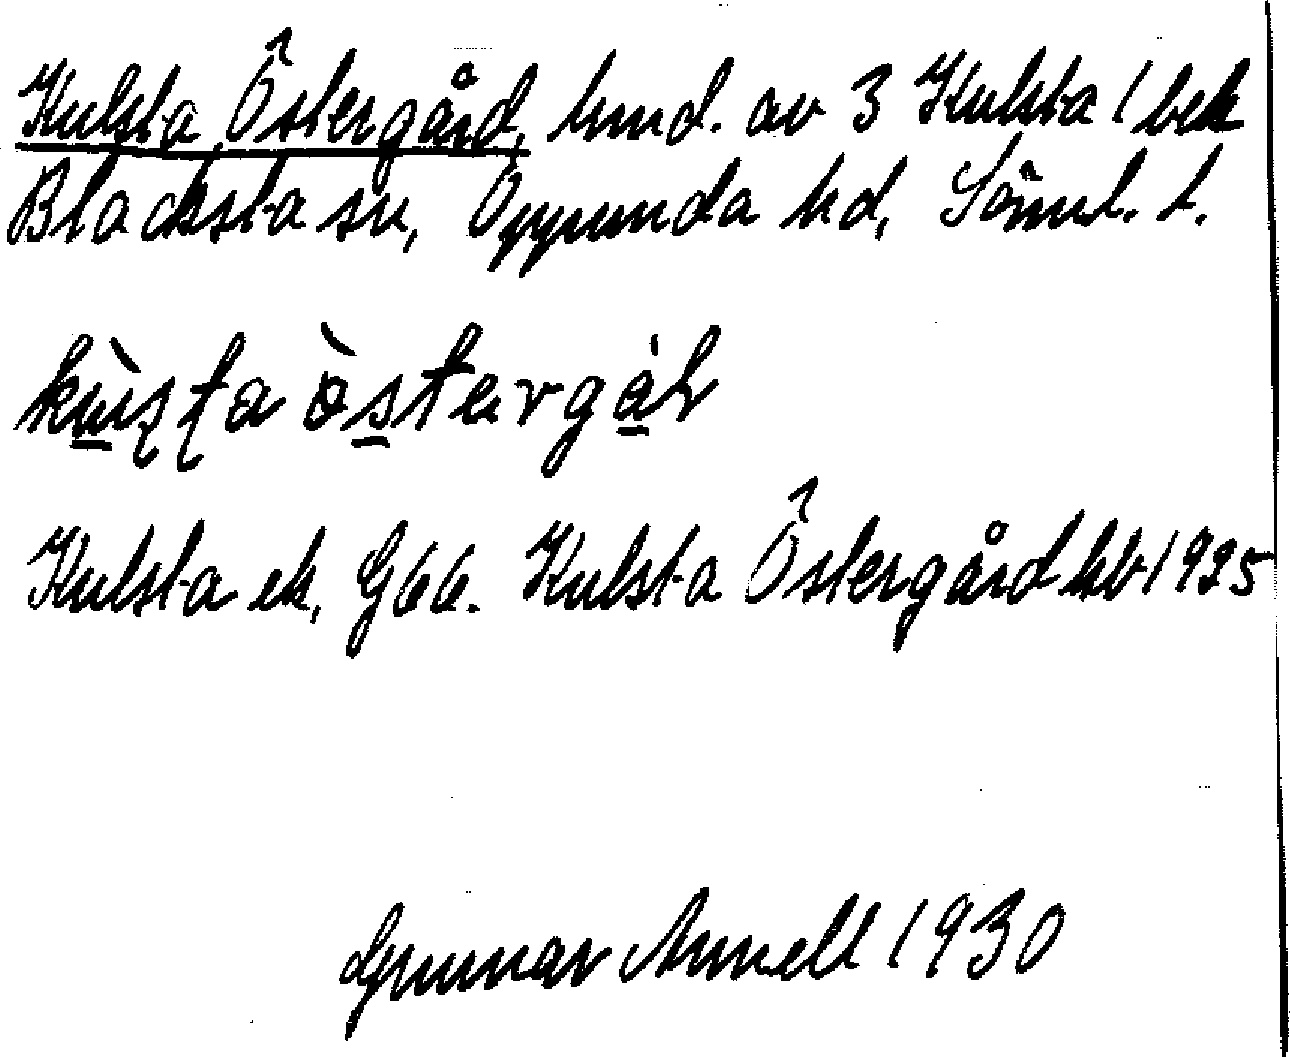 Kulsta Östergård, hmd. av 3 Kulsta 1 bek
Blacksta sn, Oppunda hd, Söml. l.
Kulsta ek, G66. Kulsta Östergård kb 1925
Gunnar Annell 1930